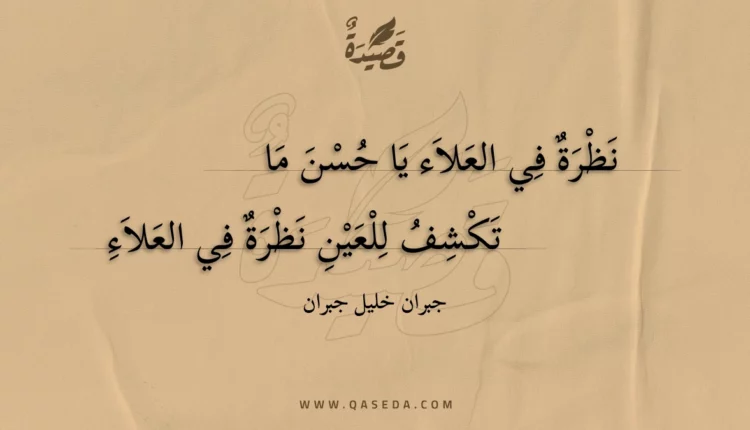 قَصِيدَةٌ
نَظْرَةٌ فِي العَلاَء يَا حُسْنَ مَا
تَكْشِفُ لِلْعَيْنِ نَظْرَةٌ فِي العَلاَءِ
جبران خليل جبران
WWW.QASEDA.COM